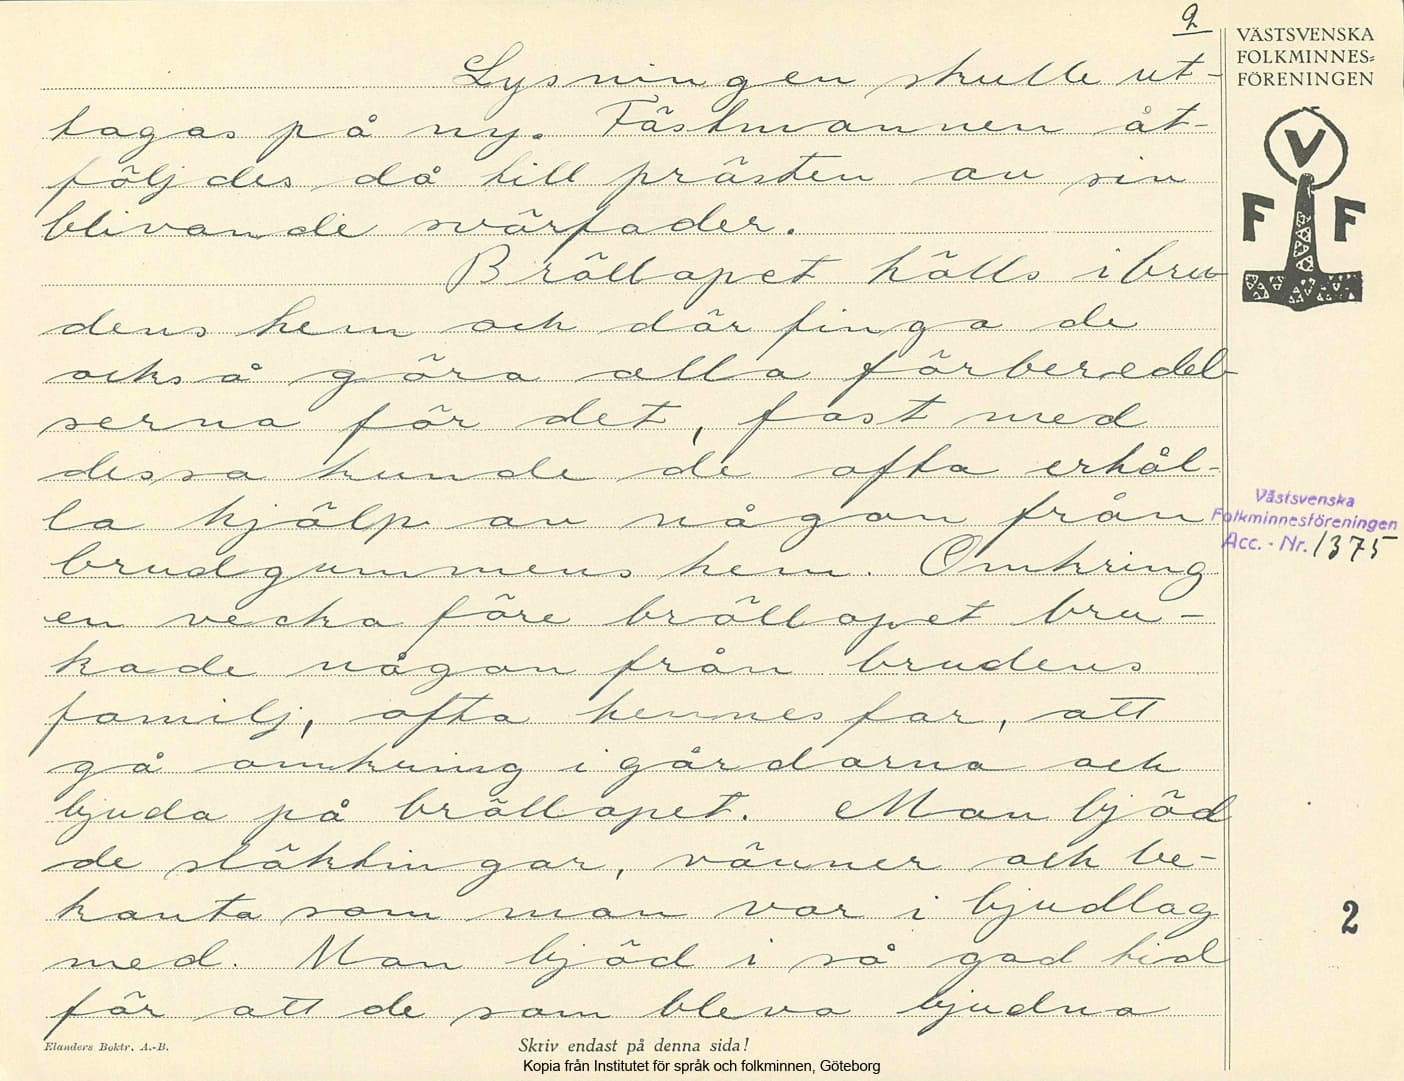 2
VÄSTSVENSKA
FOLKMINNES=
FÖRENINGEN
V
F F
Lysningen skulle ut-
tagas på ny. Fästmannen åt-
följdes då till prästen av sin
blivande svärfader.
Bröllopet hölls i bru-
dens hem och där finga de
också göra alla förberedel-
serna för det, fast med
dessa kunde de ofta erhål-
la hjälp av någon från
brudgummens hem. Omkring
en vecka före bröllopet bru-
kade någon från brudens
familj, ofta hennes far, att
gå omkring i gårdarna och
bjuda på bröllopet. Man bjöd
de släktingar, vänner och be-
kanta som man var i bjudlag
med. Man bjöd i så god tid
för att de som bleva bjudna
Västsvenska
Folkminnesföreningen
Acc. - Nr. 1375
2
Elanders Boktr. A.-B.
Skriv endast på denna sida!
Kopia från Institutet för språk och folkminnen, Göteborg